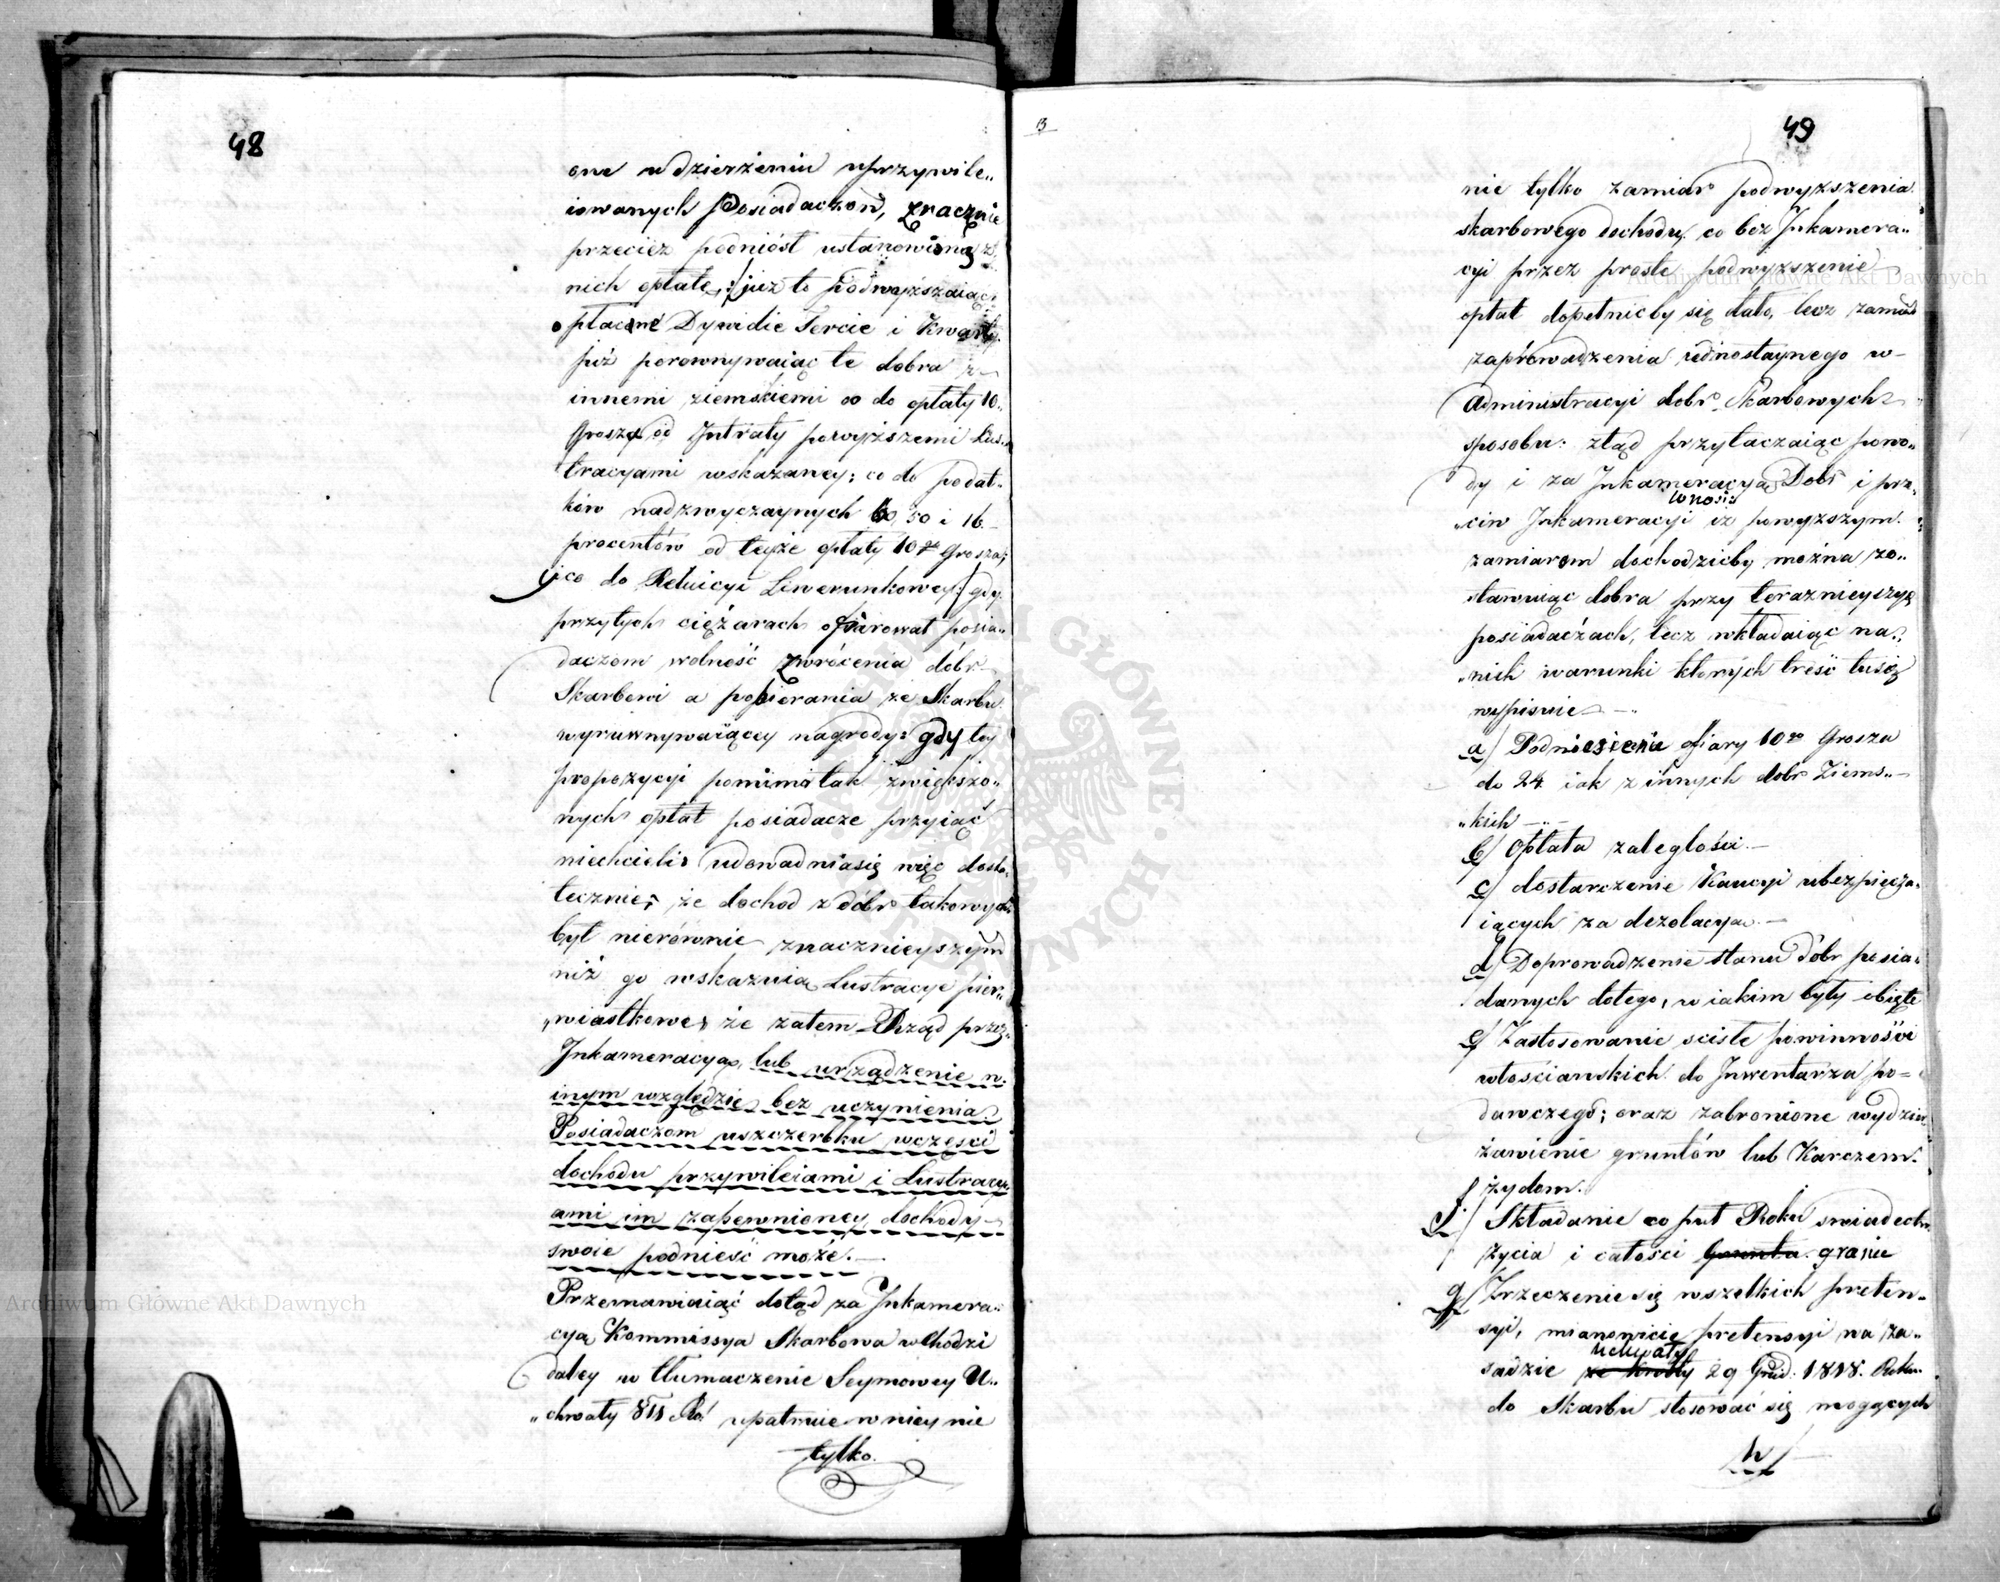 48
one w dzierżeniu uprzywile„
iowanych Posiadaczow, znacznie
przecież podniósł ustanowioną z
nich opłatę, już to podwyższaiąc
opłacane Dywidie Tercie i Kwarty
już porownywaiąc te dobra z
innemi ziemskiemi co do opłaty 10„
Grosza od Intraty powyższemi Lus„
tracyami wskazaney; co do podat„
ków nadzwyczaynych 60, 50 i 16.
procentów od teyże opłaty 10go Grosza;
i co do Reluicyi Liwerunkowey; gdy
przytych ciężarach ofiarował posia„
daczom wolność zwrócenia dóbr
Skarbowi a pobierania ze Skarbu
wyrównywaiącey nagrody: gdy tey
propozycyi pomimo tak zwiększo„
nych opłat posiadacze przyiąć
niechcieli: udowadnia się więc dosta„
tecznie, że dochod z dóbr takowych
był nierównie znacznieyszym
niż go wskazuią Lustracye pier„
„wiastkowe, że zatem Rząd przez
Inkameracyą, lub urządzenie w
inym względzie bez uczynienia
Posiadaczom uszczerbku w części
dochodu przywileiami i Lustracy„
ami im zapewnioney dochody
swoie podnieść może.
Przemawiaiąć dotąd za Inkamera„
cyą Kommissya Skarbowa wchodzi
daley w tłumaczenie Seymowey U„
„chwały 818 Ro: upatruie w niey nie
tylko.
13
49
nie tylko zamiar podwyższenia
skarbowego dochodu, co bez Inkamera„
cyi przez proste podwyższenie
opłat dopełnić by się dało, lecz zamiar
zaprowadzenia iednostaynego w
Administracyi dobr Skarbowych
sposobu: ztąd przytaczaiąc powo„
dy i za Inkameracyą Dobr i prze„
wnosi
„ciw Inkameracyi iż powyższym
zamiarom dochodzićby można zo„
stawuiąc dobra przy teraznieyszych
posiadaczach, lecz wkładaiąc na
„nich warunki ktorych treść tu się
wypisuie
a/ Podniesienie ofiary 10go Grosza
do 24 iak z innych dobr Ziems„
„kich
b/ Opłata zaległości
c/ dostarczenie Kaucyi ubezpiecza„
iących za dezolacya
d/ Doprowadzenie stanu dóbr posia„
danych dotego, w iakim były obięte
e/ Zastosowanie sciste powinności
włościanskich do Inwentarza po=
dawczego; oraz zabronione wydzier
żawienie gruntów lub Karczem
żydom.
f/ Składanie co puł Roku swiadectw
życia i całości Gruntu granic
g/ Zrzeczenie się wszelkich preten„
syi, mianowicie pretensyi na za„
uchwały
sadzie 29 Grud: 1818. Roku
do Skarbu stosować się mogących
h/
Archiwum Główne Akt Dawnych
Archiwum Główne Akt Dawnych